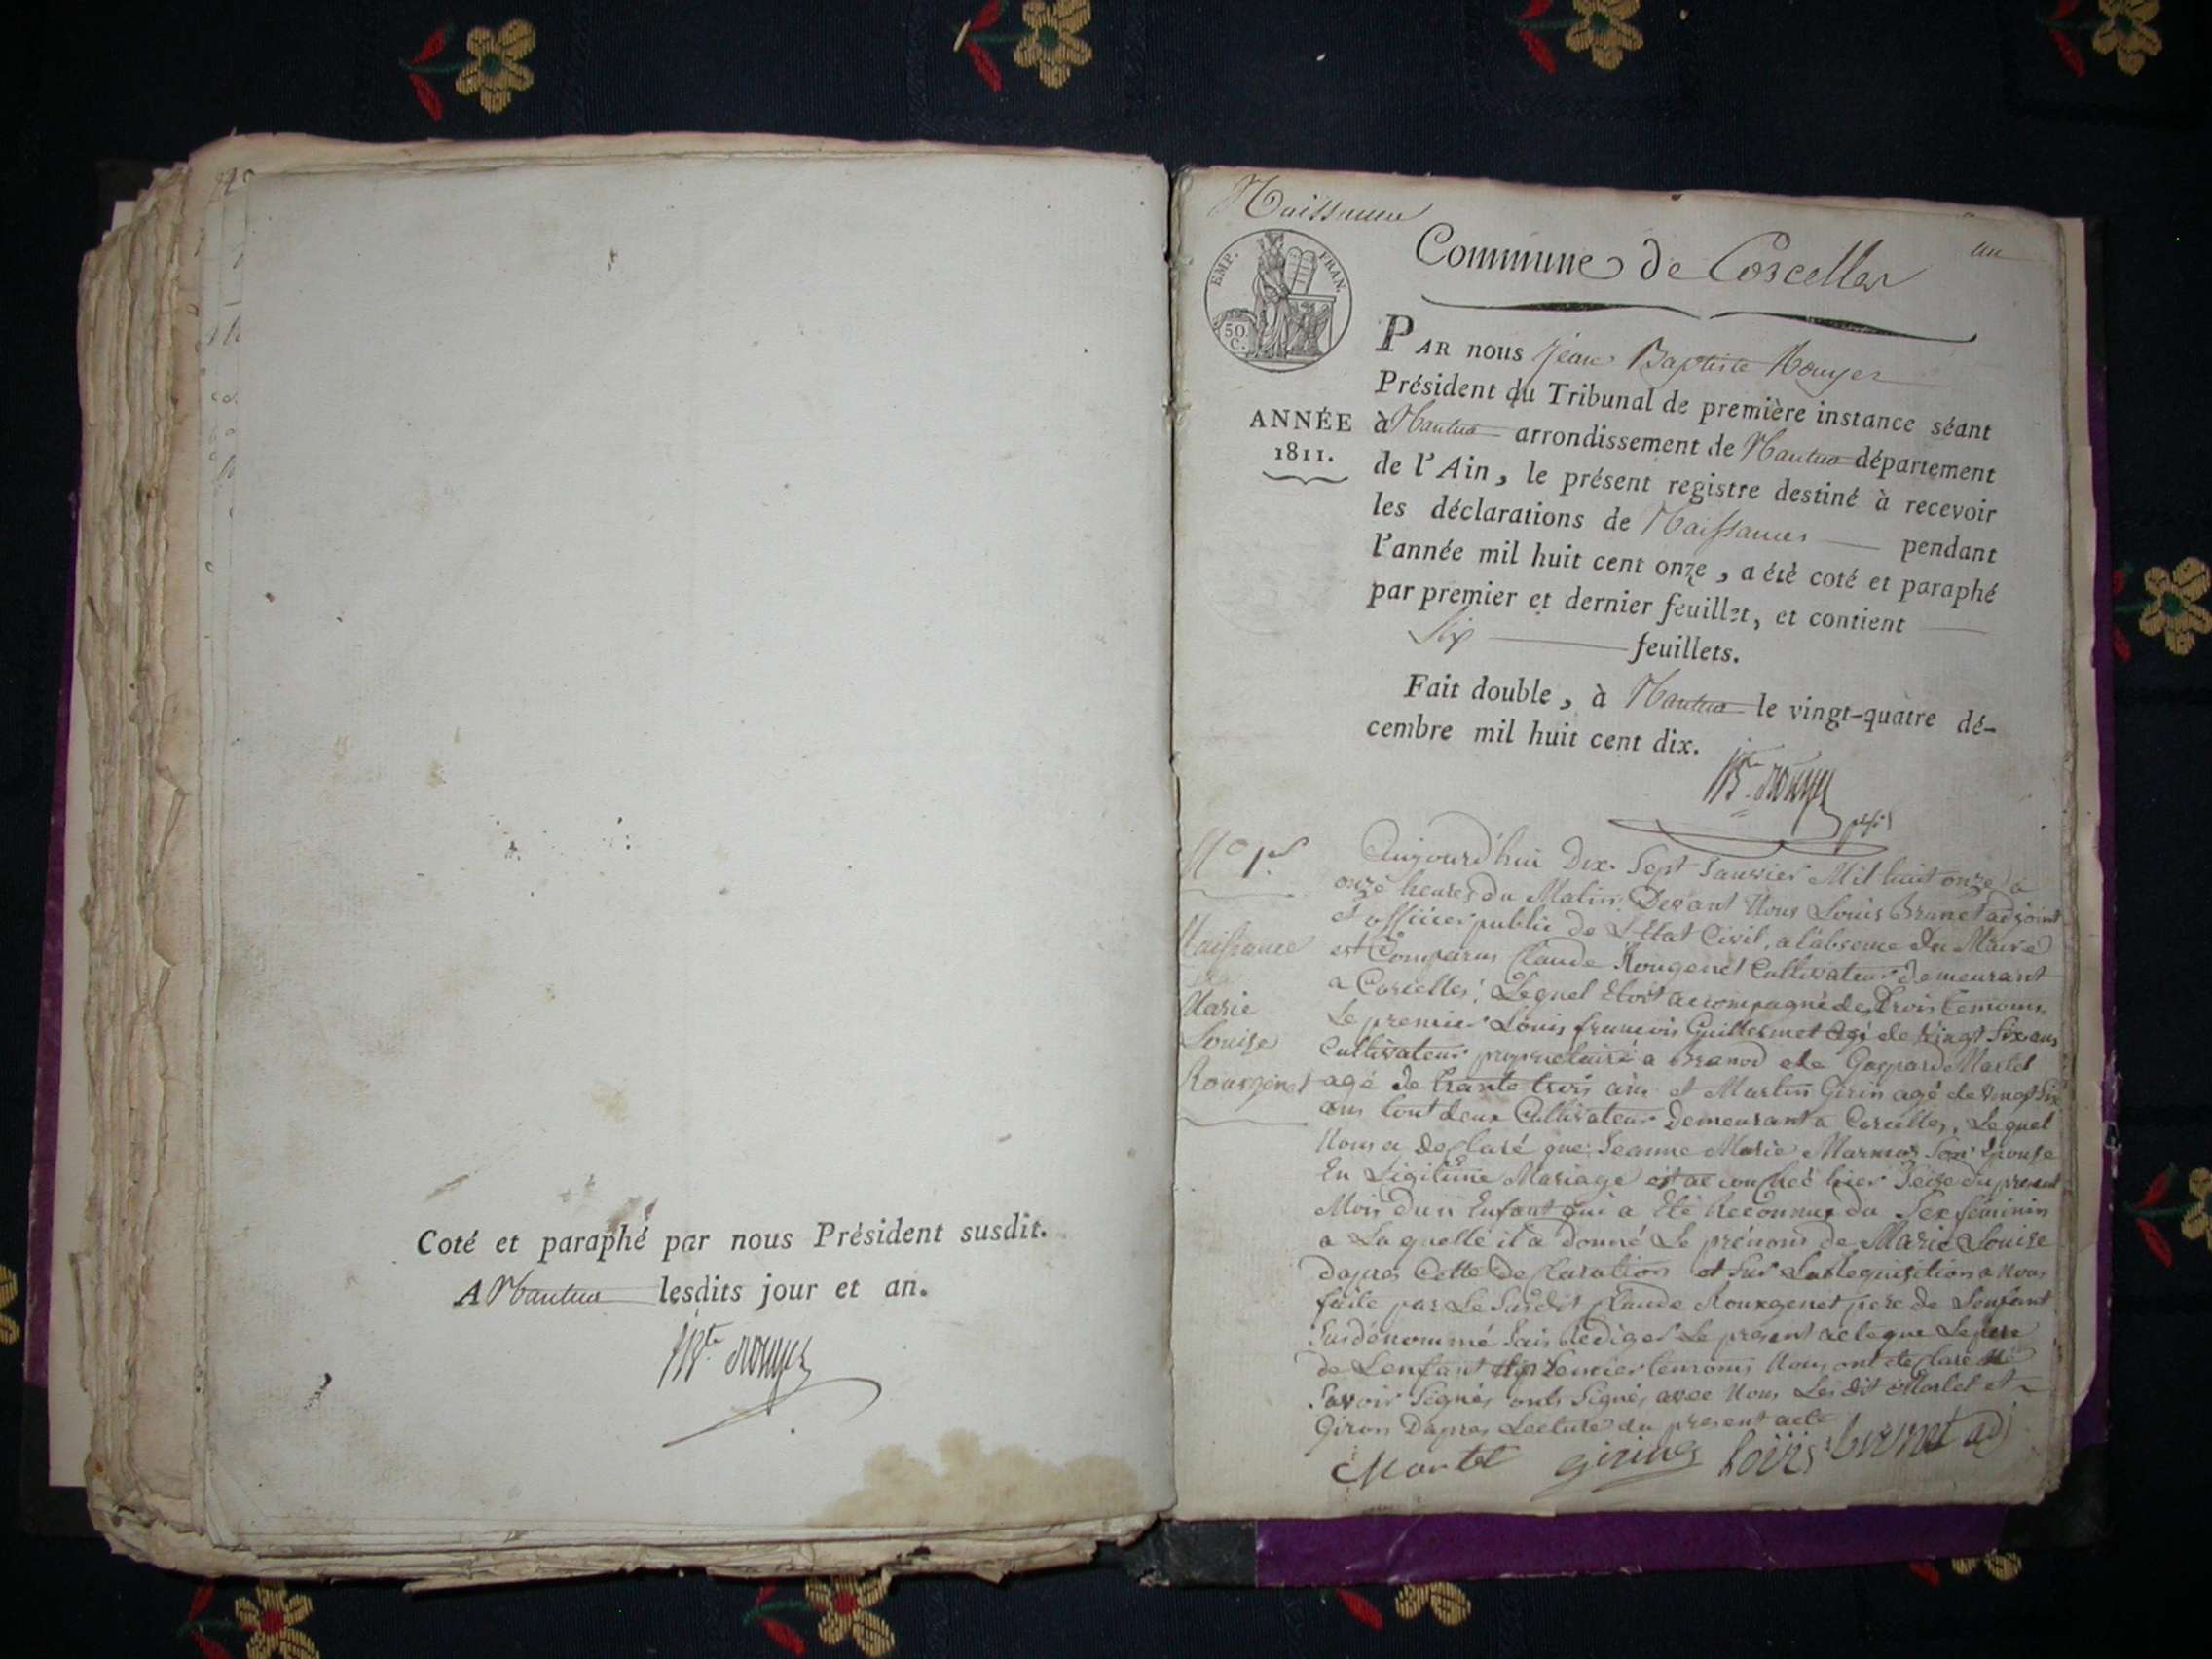 Coté et paraphé par nous Président susdit.
A Nantua lesdits jour et an.
JBte Rouyer
Naissances
un
Commune de Corcelles
EMP. FRAN.
50 C.
ANNÉE
1811.
PAR nous Jean Baptiste Rouyer
Président du Tribunal de première instance séant
à Nantua arrondissement de Nantua département
de l'Ain, le présent registre destiné à recevoir
les déclarations de Naissances pendant
l'année mil huit cent onze, a été coté et paraphé
par premier et dernier feuillet, et contient
Six feuillets.
Fait double, à Nantua le vingt-quatre dé-
cembre mil huit cent dix.
JBte Rouyer
N° 1er
Naissance
Marie
Louise
Rougenet
Aujourd'hui Dix Sept Janvier Mil huit onze a
onze heures du Matin, Devant Nous Louis Brunet adjoint
et officier public de L'Etat Civil, a l'absence du Maire
est Comparus Claude Rougenet Cultivateur demeurant
a Corcelles, Lequel Etoit accompagné de trois temoins
Le premier Louis francois Guillermet agé de vingt Six ans
Cultivateur propriétaire a Branod et de Gaspard Martel
agé de trante trois ans et Martin Girin agé de vingt Six
ans tout deux Cultivateur Demeurant a Corcelles, Lequel
Nous a declaré que Jeanne Marie son Epouse
En Ligitime Mariage est accouchéé hier Seize du present
Mois d'un Enfant qui a Eté Reconnue du Sex féminin
a La quelle il a donné Le prénoms de Marie Louise
Dapres Cette Declaration et Sur La Requisition a Nous
faite par Le Susdit Claude Rouxgenet pere de Lenfant
Susdénommé Sais Rediger Le present acte que Le pere
de Lenfant premier temoins Nous ont declaré ne
Savoir Signés onts Signés avec Nous Les dit Martel et
Giron Dapres Lecture du present acte
Martel girin Loüis brunet adj